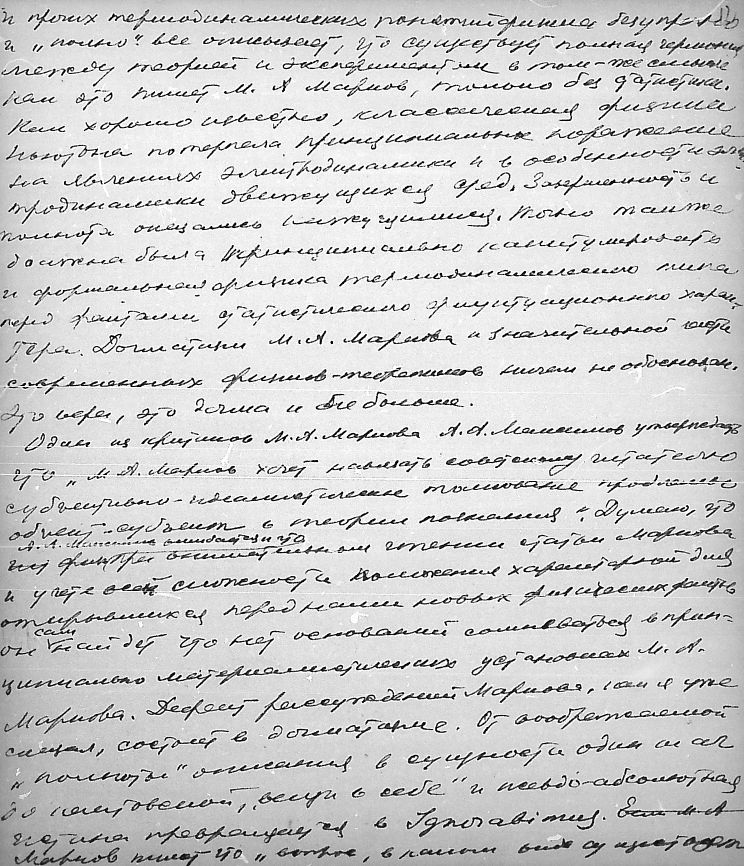 и проих термодинамических понятий физика безупречно
и "полно" все описывает, что существует полная гармония
между теорией и экспериментом в том-же смысле
как это пишет М. А Марков, только без статистики.
Как хорошо известно, классическая физика
Ньютона потерпела принципиальное поражение
на явлениях электродинамики и в особенности элек-
тродинамики движущихся сред. Завершенность и
полнота оказались кажущимися. Точно также
должна была принципиально капитулировать
и формальная физика термодинамического типа
перед фактами статистического флуктуационного харак-
тера. Догматизм М. А. Маркова и значительной части
современных физиков-теоретиков ничем не обоснован.
Это вера, это догма и не больше.
Один из критиков М. А. Маркова А. А. Максимов утверждает
что "М. А. Марков хочет навязать советскому читателю
субъективно-идеалистическое толкование проблемы
объект-субъект в теории познания". Думаю, что
А. А. Максимов ошибается и что
при внимательном чтении статьи Маркова
и учете всей сложности положения характерной для
открывшихся перед нами новых физических фактов
он сам найдет что нет оснований сомневаться в прин-
ципиально материалистических установках М. А.
Маркова. Дефект рассуждений Маркова, как я уже
сказал, состоит в догматизме. От воображаемой
"полноты" описания в сущности один шаг
до кантовской "вещи в себе" и псевдо-абсолютная
истина превращается в Ignorabimus. Если М. А
Марков пишет что "вопрос, в каком виде существует